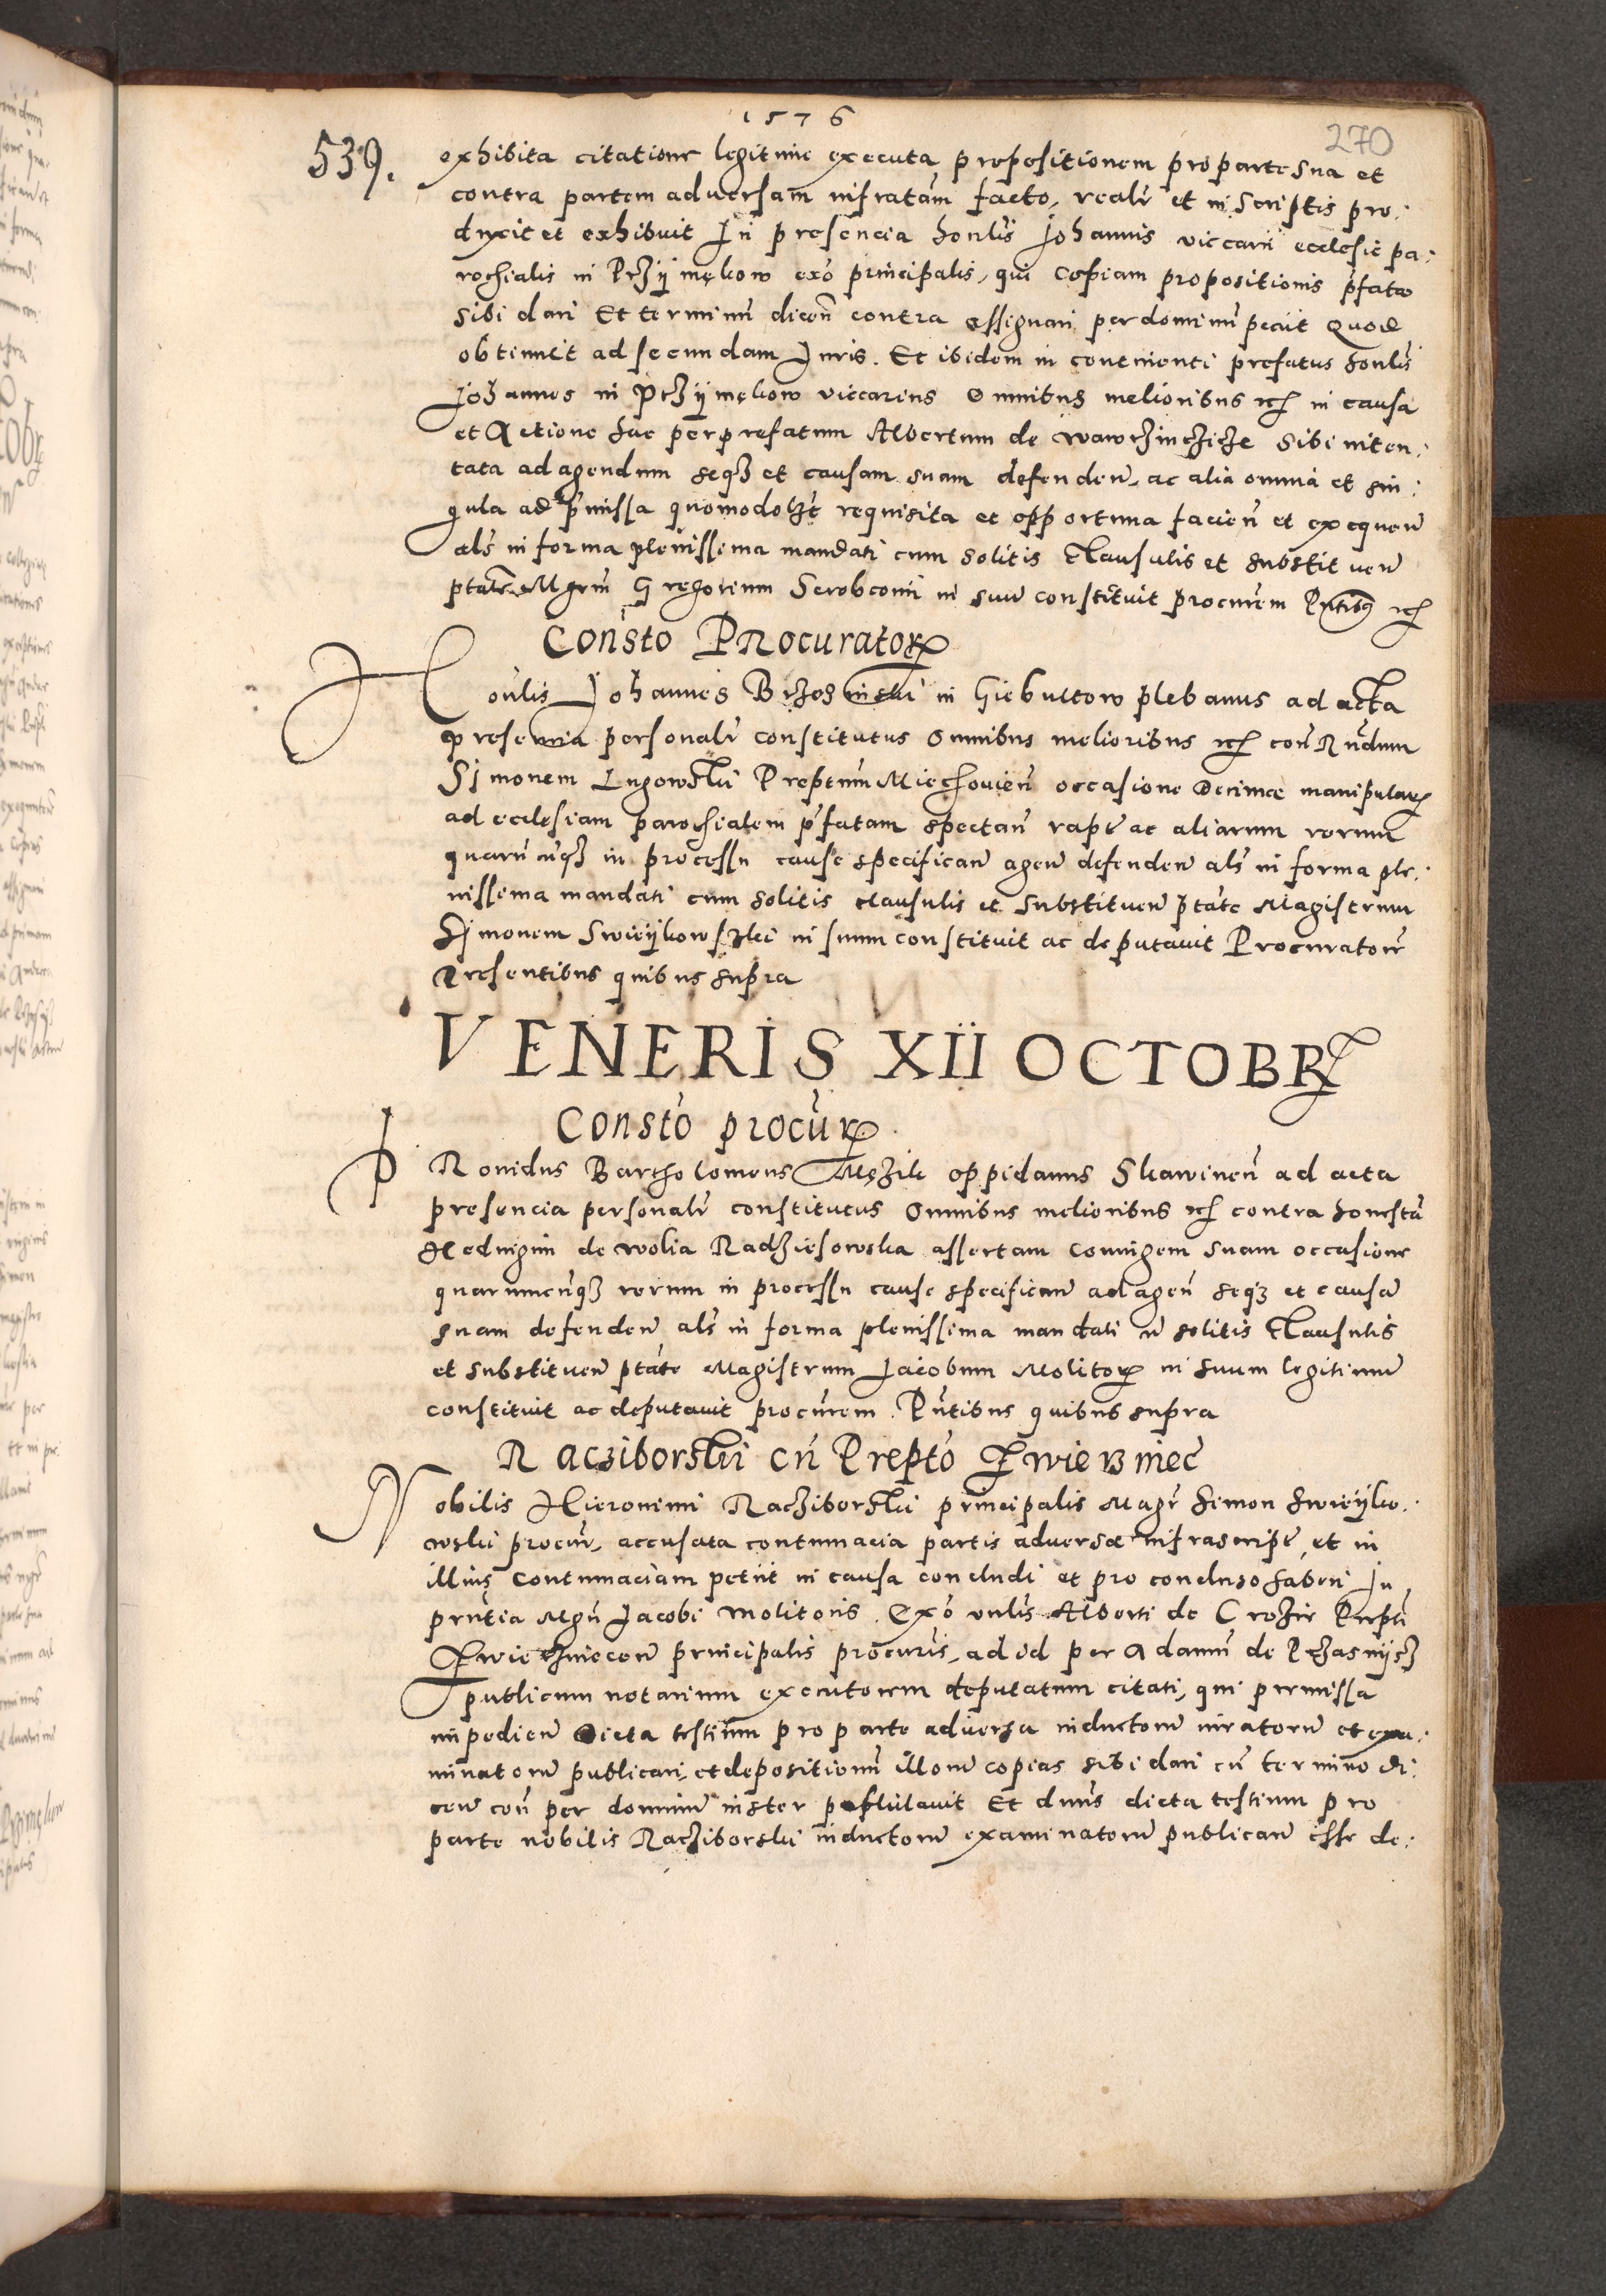 1576
270
539.
exhibita citatione legitime executa propositionem pro parte sua et
contra partem adversam infratam facto, realr et in scriptis pro:
duxit et exhibuit In presencia honlis Johannis viccarii ecclesie pa:
rochialis in Prziimękow exo principalis, qui copiam propositionis pfatae
sibi dari Et terminum dicen contra assignari per dominum peciit Quod
obtinuit ad secundam Juris. Et ibidem in continenti prefatus honlis
Johannes in Prziimękow viccarius Omnibus melioribus etc in causa
et Actione hac per prefatum Albertum de wawrzinczicze sibi inten:
tata ad agendum seqz et causam suam defenden, ac alia omnia et sin:
gula ad pmissa quomodolzt requisita et opportuna facien et exequen
als in forma plenissima mandati cum solitis clausulis et substituen
ptate Mgrm Gregorium Scrobconi in suu constituit procurem Pntibus etc
Consto Procurator
Honlis Johannes Brzoswinski in Giebultow plebanus ad acta
presencia personalr constitutus Omnibus melioribus etc con Rndum
Simonem Lugowski Preptum Miechouien occasione Decimae manipular
ad ecclesiam parochialem pfatam spectan rapt ac aliarum rerum
quarumcuqz in processu cause specifican agen defenden als in forma ple:
nissima mandati cum solitis clausulis et substituen ptate Magistrum
Simonem Swieijkowszki in suum constituit ac deputavit Procuratore
Presentibus quibus supra
VENERIS XII OCTOBR
Consto procur
PRouidus Bartholomeus Mężik oppidanus Skawinen ad acta
presencia personalr constitutus Omnibus melioribus etc contra honestã
Hedvigim de wolia Radziesowska assertam Coniugem suam occasione
quarumcunqz rerum in processu cause specifican ad agen seqz et causa
suam defenden als in forma plenissima mandati cu solitis clausulis
et substituen ptate Magistrum Jacobum Molitor in suum legitimu
constituit ac deputavit procurem. Pntibus quibus supra
Racziborski cu Prepto Zwierzniec
Nobilis Hieronimi Racziborski principalis Magr Simon Swieijko:
wski procur, accusata contumacia partis adversae infrascript, et in
illius contumaciam petiit in causa concludi et pro concluso haberi In
pntia Mgri Jacobi Molitoris. Exo vnlis Alberti de Crozir Prepti
Zwierzniecen principalis procuris, ad id per Adamum de Przasniisz
publicum notarium executorem deputatum citati, qui premissa
impedien Dicta testium pro parte adversa inductoru iuratoru et exa:
minatoru publicari, et depositionum illoru copias sibi dari cu termino di:
cen con per dominu inster postulavit Et dnus dicta testium pro
parte nobilis Racziborski inductoru examinatoru publican esse de: